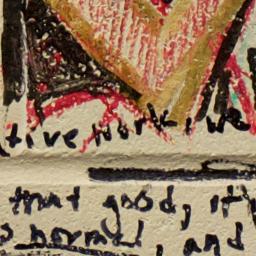 tive work, we
that good, it'
normal, and